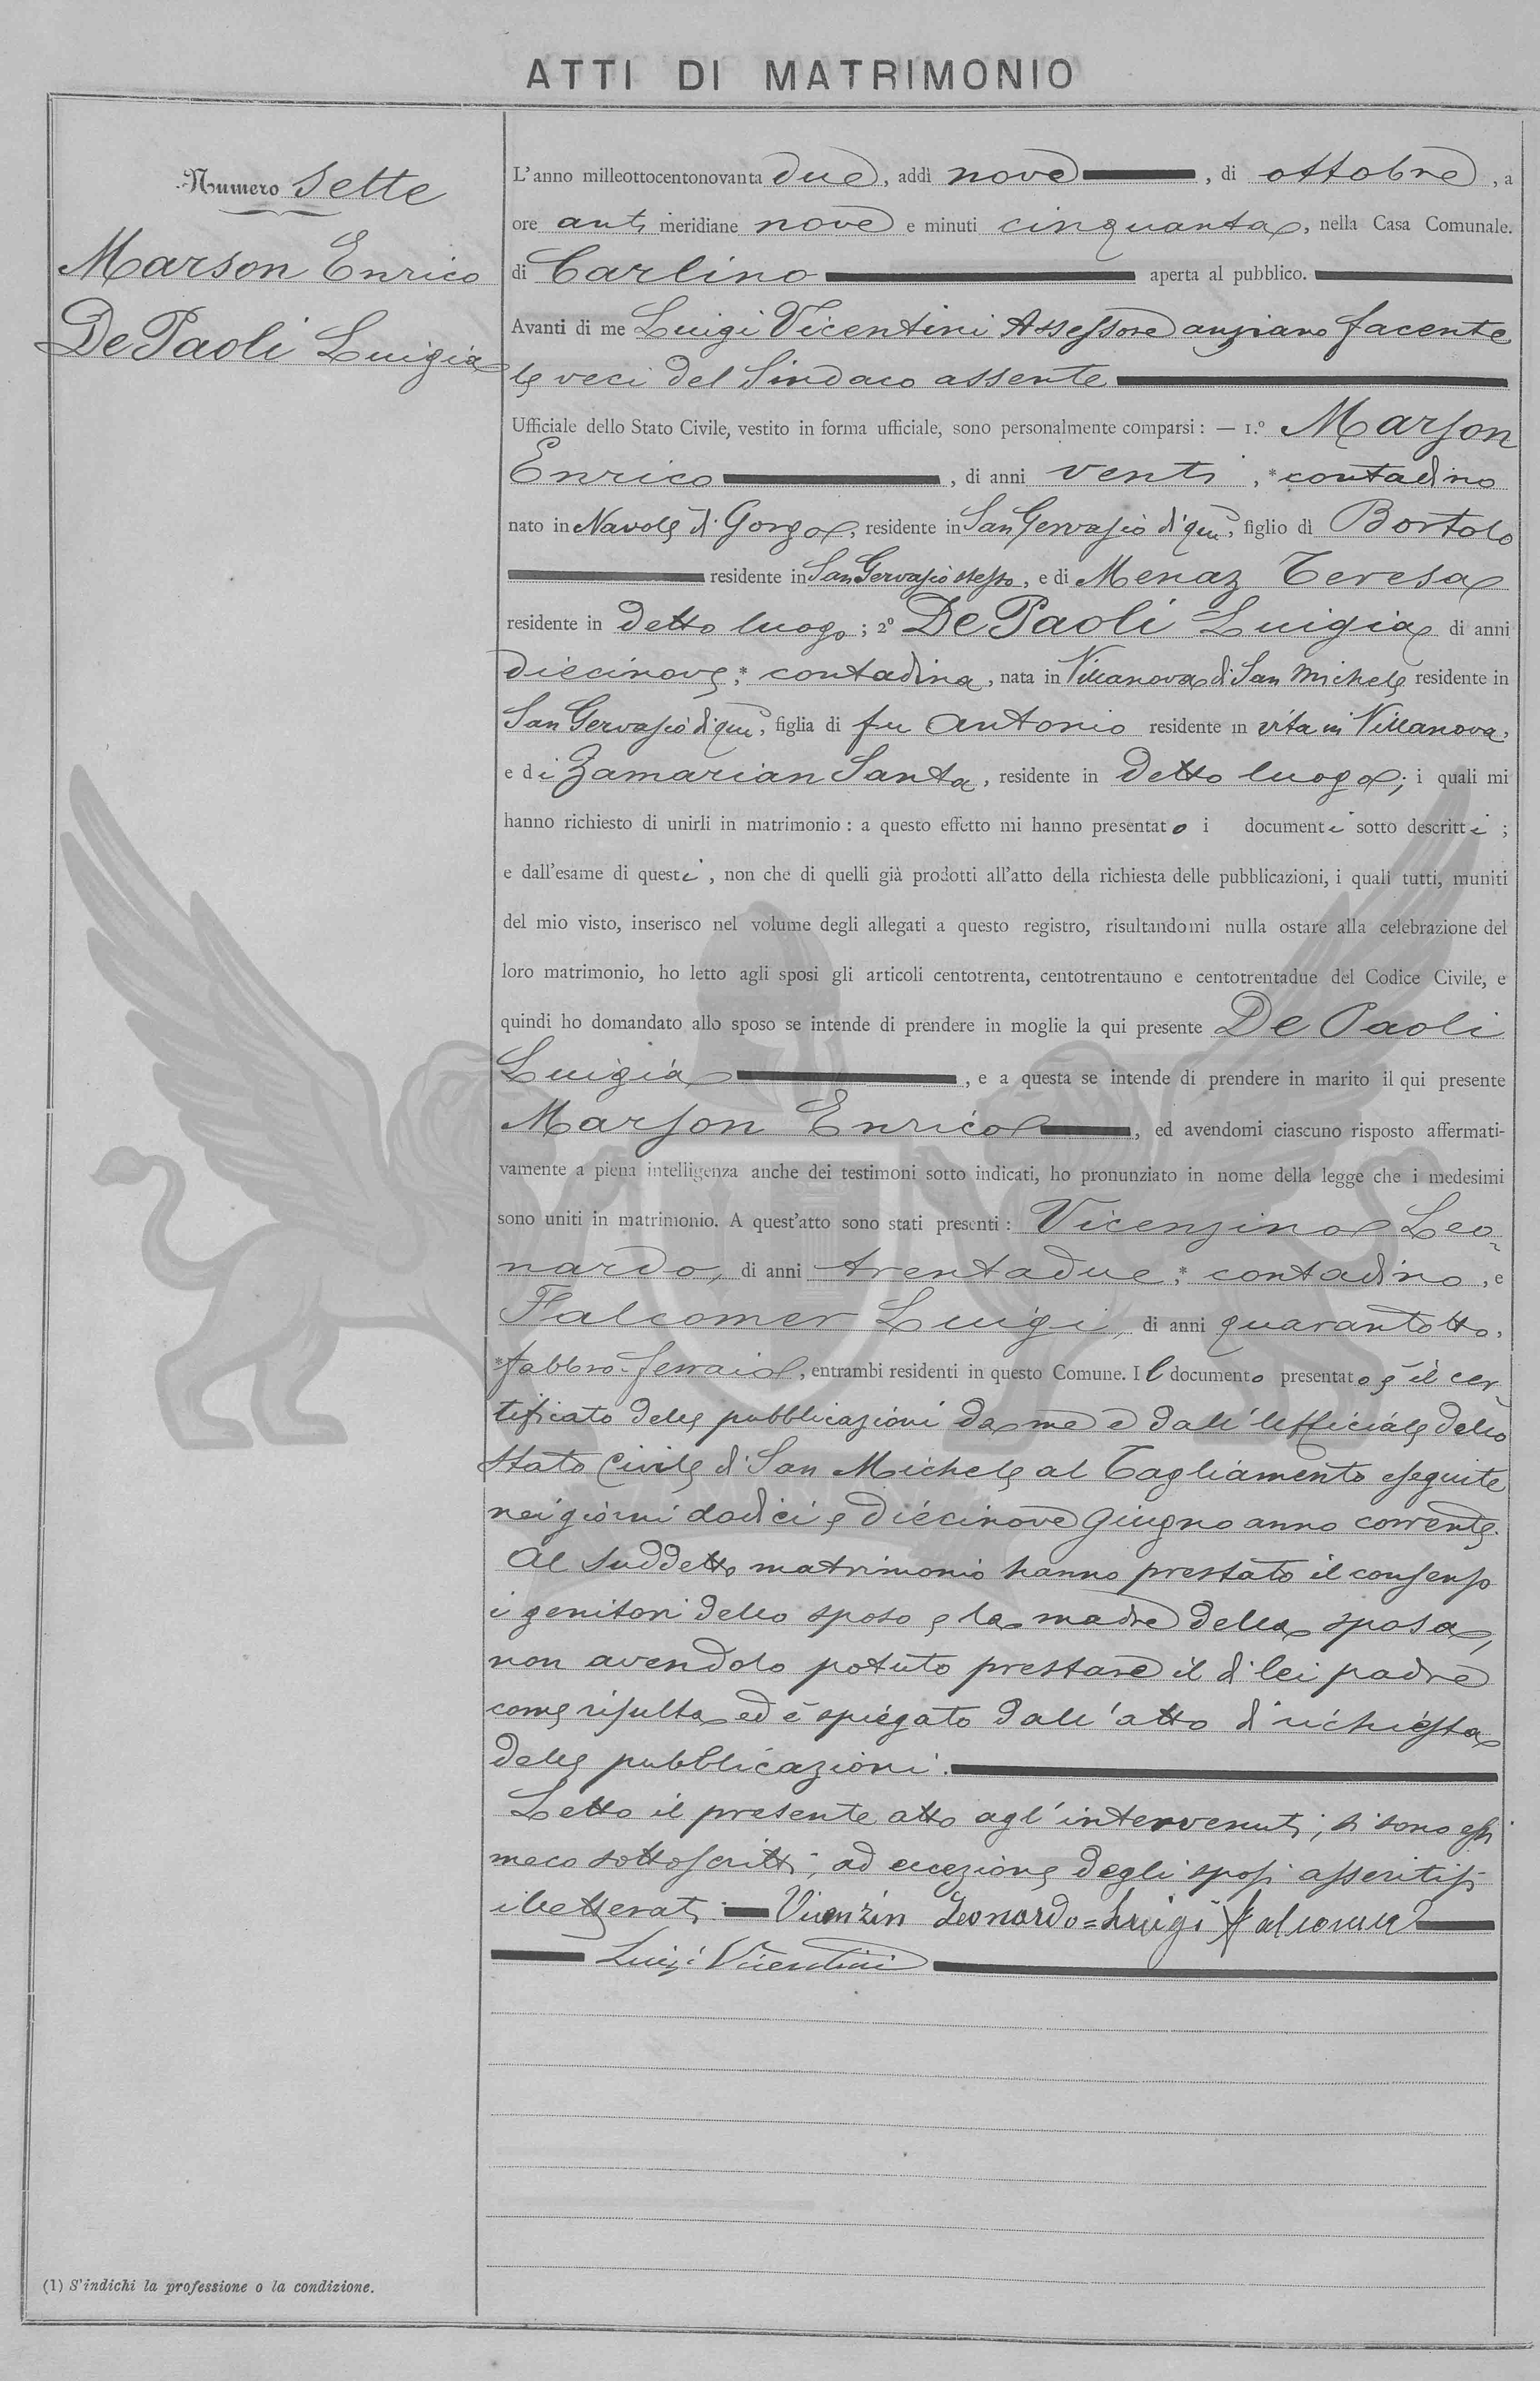 ATTI DI MATRIMONIO
Numero Sette
Marson Enrico
De Paoli Luigia
L'anno milleottocentonovanta due, addì nove, di ottobre, a
ore anti meridiane nove e minuti cinquanta, nella Casa Comunale.
di Carlino aperta al pubblico.
Avanti di me Luigi Vicentini Assessore anziano facente
le veci del Sindaco assente
Ufficiale dello Stato Civile, vestito in forma ufficiale, sono personalmente comparsi: — 1.º Marson
Enrico, di anni venti, * contadino
nato in Navolè di Gorgo, residente in San Gervasio di qui, figlio di Bortolo
residente in San Gervasio stesso, e di Menaz Teresa
residente in detto luogo; 2º De Paoli Luigia di anni
diecinove, * contadina, nata in Villanova di San Michele residente in
San Gervasio di qui, figlia di fu Antonio residente in vita in Villanova,
e di Zamarian Santa, residente in detto luogo; i quali mi
hanno richiesto di unirli in matrimonio: a questo effetto mi hanno presentato i documenti sotto descritti;
e dall'esame di questi, non che di quelli già prodotti all'atto della richiesta delle pubblicazioni, i quali tutti, muniti
del mio visto, inserisco nel volume degli allegati a questo registro, risultandomi nulla ostare alla celebrazione del
loro matrimonio, ho letto agli sposi gli articoli centotrenta, centotrentauno e centotrentadue del Codice Civile, e
quindi ho domandato allo sposo se intende di prendere in moglie la qui presente De Paoli
Luigia, e a questa se intende di prendere in marito il qui presente
Marson Enrico, ed avendomi ciascuno risposto affermati-
vamente a piena intelligenza anche dei testimoni sotto indicati, ho pronunziato in nome della legge che i medesimi
sono uniti in matrimonio. A quest'atto sono stati presenti: Vicenzino Leo-
nardo, di anni trentadue, * contadino, e
Falcomer Luigi, di anni quarantotto,
*fabbro-ferraio, entrambi residenti in questo Comune. Il documento presentato è il cer
tificato delle pubblicazioni da me e dall'Ufficiale dello
Stato Civile di San Michele al Tagliamento eseguite
nei giorni dodici e diecinove Giugno anno corrente.
Al suddetto matrimonio hanno prestato il consenso
i genitori dello sposo e la madre della sposa,
non avendolo potuto prestare il di lei padre
come risulta ed è spiegato dall'atto di richiesta
delle pubblicazioni.
Letto il presente atto agl'intervenuti, si sono essi
meco sottoscritti, ad eccezione degli sposi asseritisi
illetterati. Vicenzin Leonardo = Luigi Falcomer
Luigi Vicentini
(1) S'indichi la professione o la condizione.